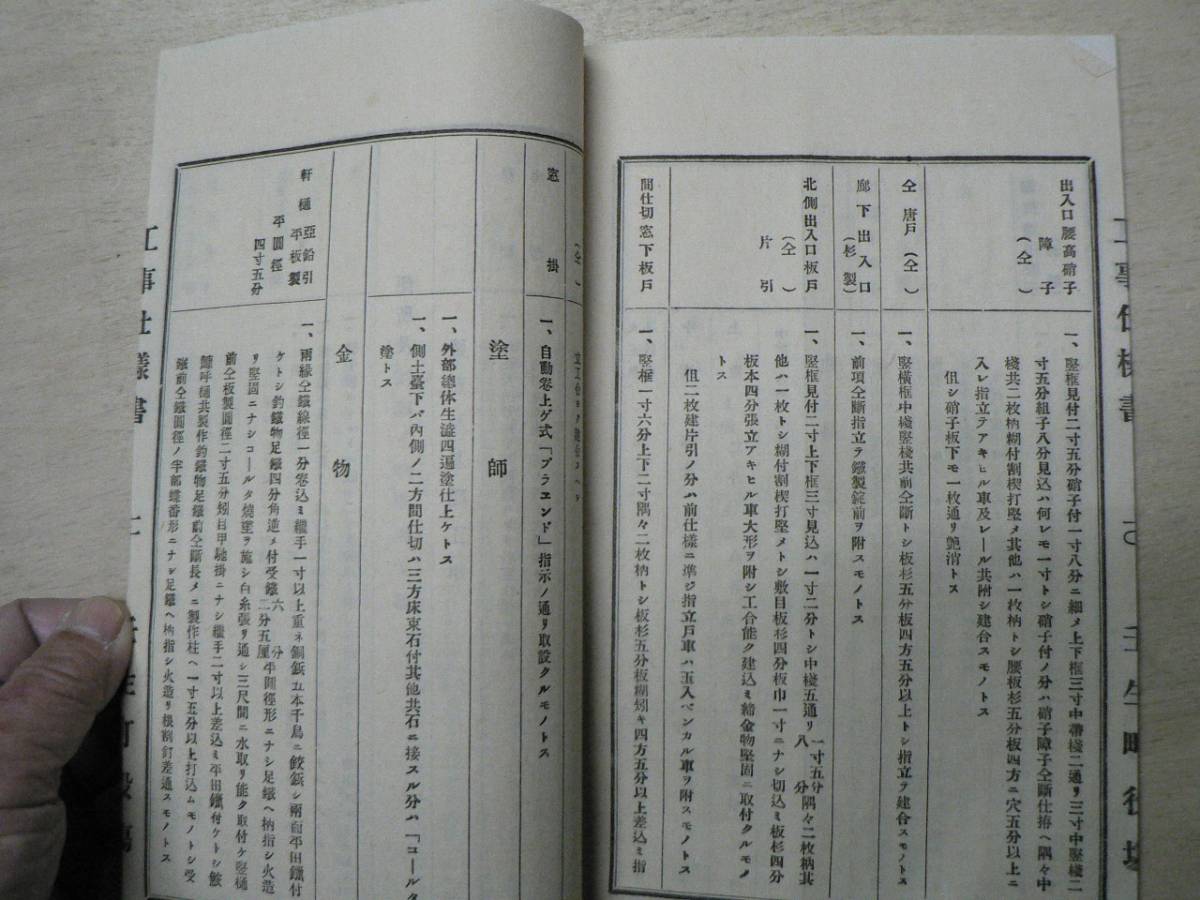 出入口腰高硝子
障子
(仝)
一、竪框見付二寸五分硝子付一寸八分ニ細メ上下框三寸中帶棧二通リ三寸中竪棧二
寸五分組子八分見込ハ何レモ一寸トシ硝子付ノ分ハ硝子障子仝斷仕拵ヘ隅々中
棧共二枚枘糊付割楔打堅メ其他ハ一枚枘トシ腰板杉五分板四方ニ穴五分以上ニ
入レ指立テアキヒル車及レール共附シ建合スモノトス
但シ硝子板下モ一枚通リ艶消トス
仝唐戸(仝)
一、竪横框中棧竪棧共前仝斷トシ板杉五分板四方五分以上トシ指立ヲ建合スモノトス
廊下出入口
(杉製)
一、前項仝斷指立ヲ鐵製錠前ヲ附スモノトス
北側出入口板戸
(仝)
片引
一、竪框見付二寸上下框三寸見込ハ一寸二分トシ中棧五通リ一寸五分八分隅々二枚枘其
他ハ一枚トシ糊付割楔打堅メトシ敷目板杉四分板巾一寸ニナシ切込ミ板杉四分
板本四分張立アキヒル車大形ヲ附シ工合能ク建込ミ締金物堅固ニ取付クルモノ
トス
但二枚建片引ノ分ハ前仕様ニ準ジ指立戸車ハ玉入ベンカル車ヲ附スモノトス
間仕切窓下板戸
一、竪框一寸六分上下二寸隅々二枚枘トシ板杉五分板糊矧キ四方五分以上差込ミ指
窓掛
一、自動卷上ゲ式「ブラエンド」指示ノ通リ取設クルモノトス
塗師
一、外部總体生澁四遍塗仕上ケトス
一、側土臺下バ內側ノ二方間仕切ハ三方床束石付其他共石ニ接スル分ハ「コールタ
塗トス
金物
軒樋亞鉛引
平板製
半圓徑
四寸五分
一、兩緣仝鐵線徑一分卷込ミ繼手一寸以上重ネ銅鋲五本千鳥ニ鉸鋲シ兩面半田鑞付
ケトシ釣鐵物足鐵四分角進メ付受鐵六分二分五厘半圓徑形ニナシ足鐵ヘ枘指シ火造
リ堅固ニナシコールタ燒塗ヲ施シ白糸張リ通シ三尺間ニ水取リ能ク取付ケ竪樋
前仝板製圓徑二寸五分矧目甲馳掛ニナシ繼手二寸以上差込ミ半田鑞付ケトシ鮟
鱇呼樋共製作釣鐵物足鐵前仝斷長メニ製作柱ヘ一寸五分以上打込ムモノトシ受
鐵前仝鐵圓徑ノ宇部蝶番形ニナシ足鐵ヘ枘指シ火造リ根割釘差通スモノトス
工事仕樣書